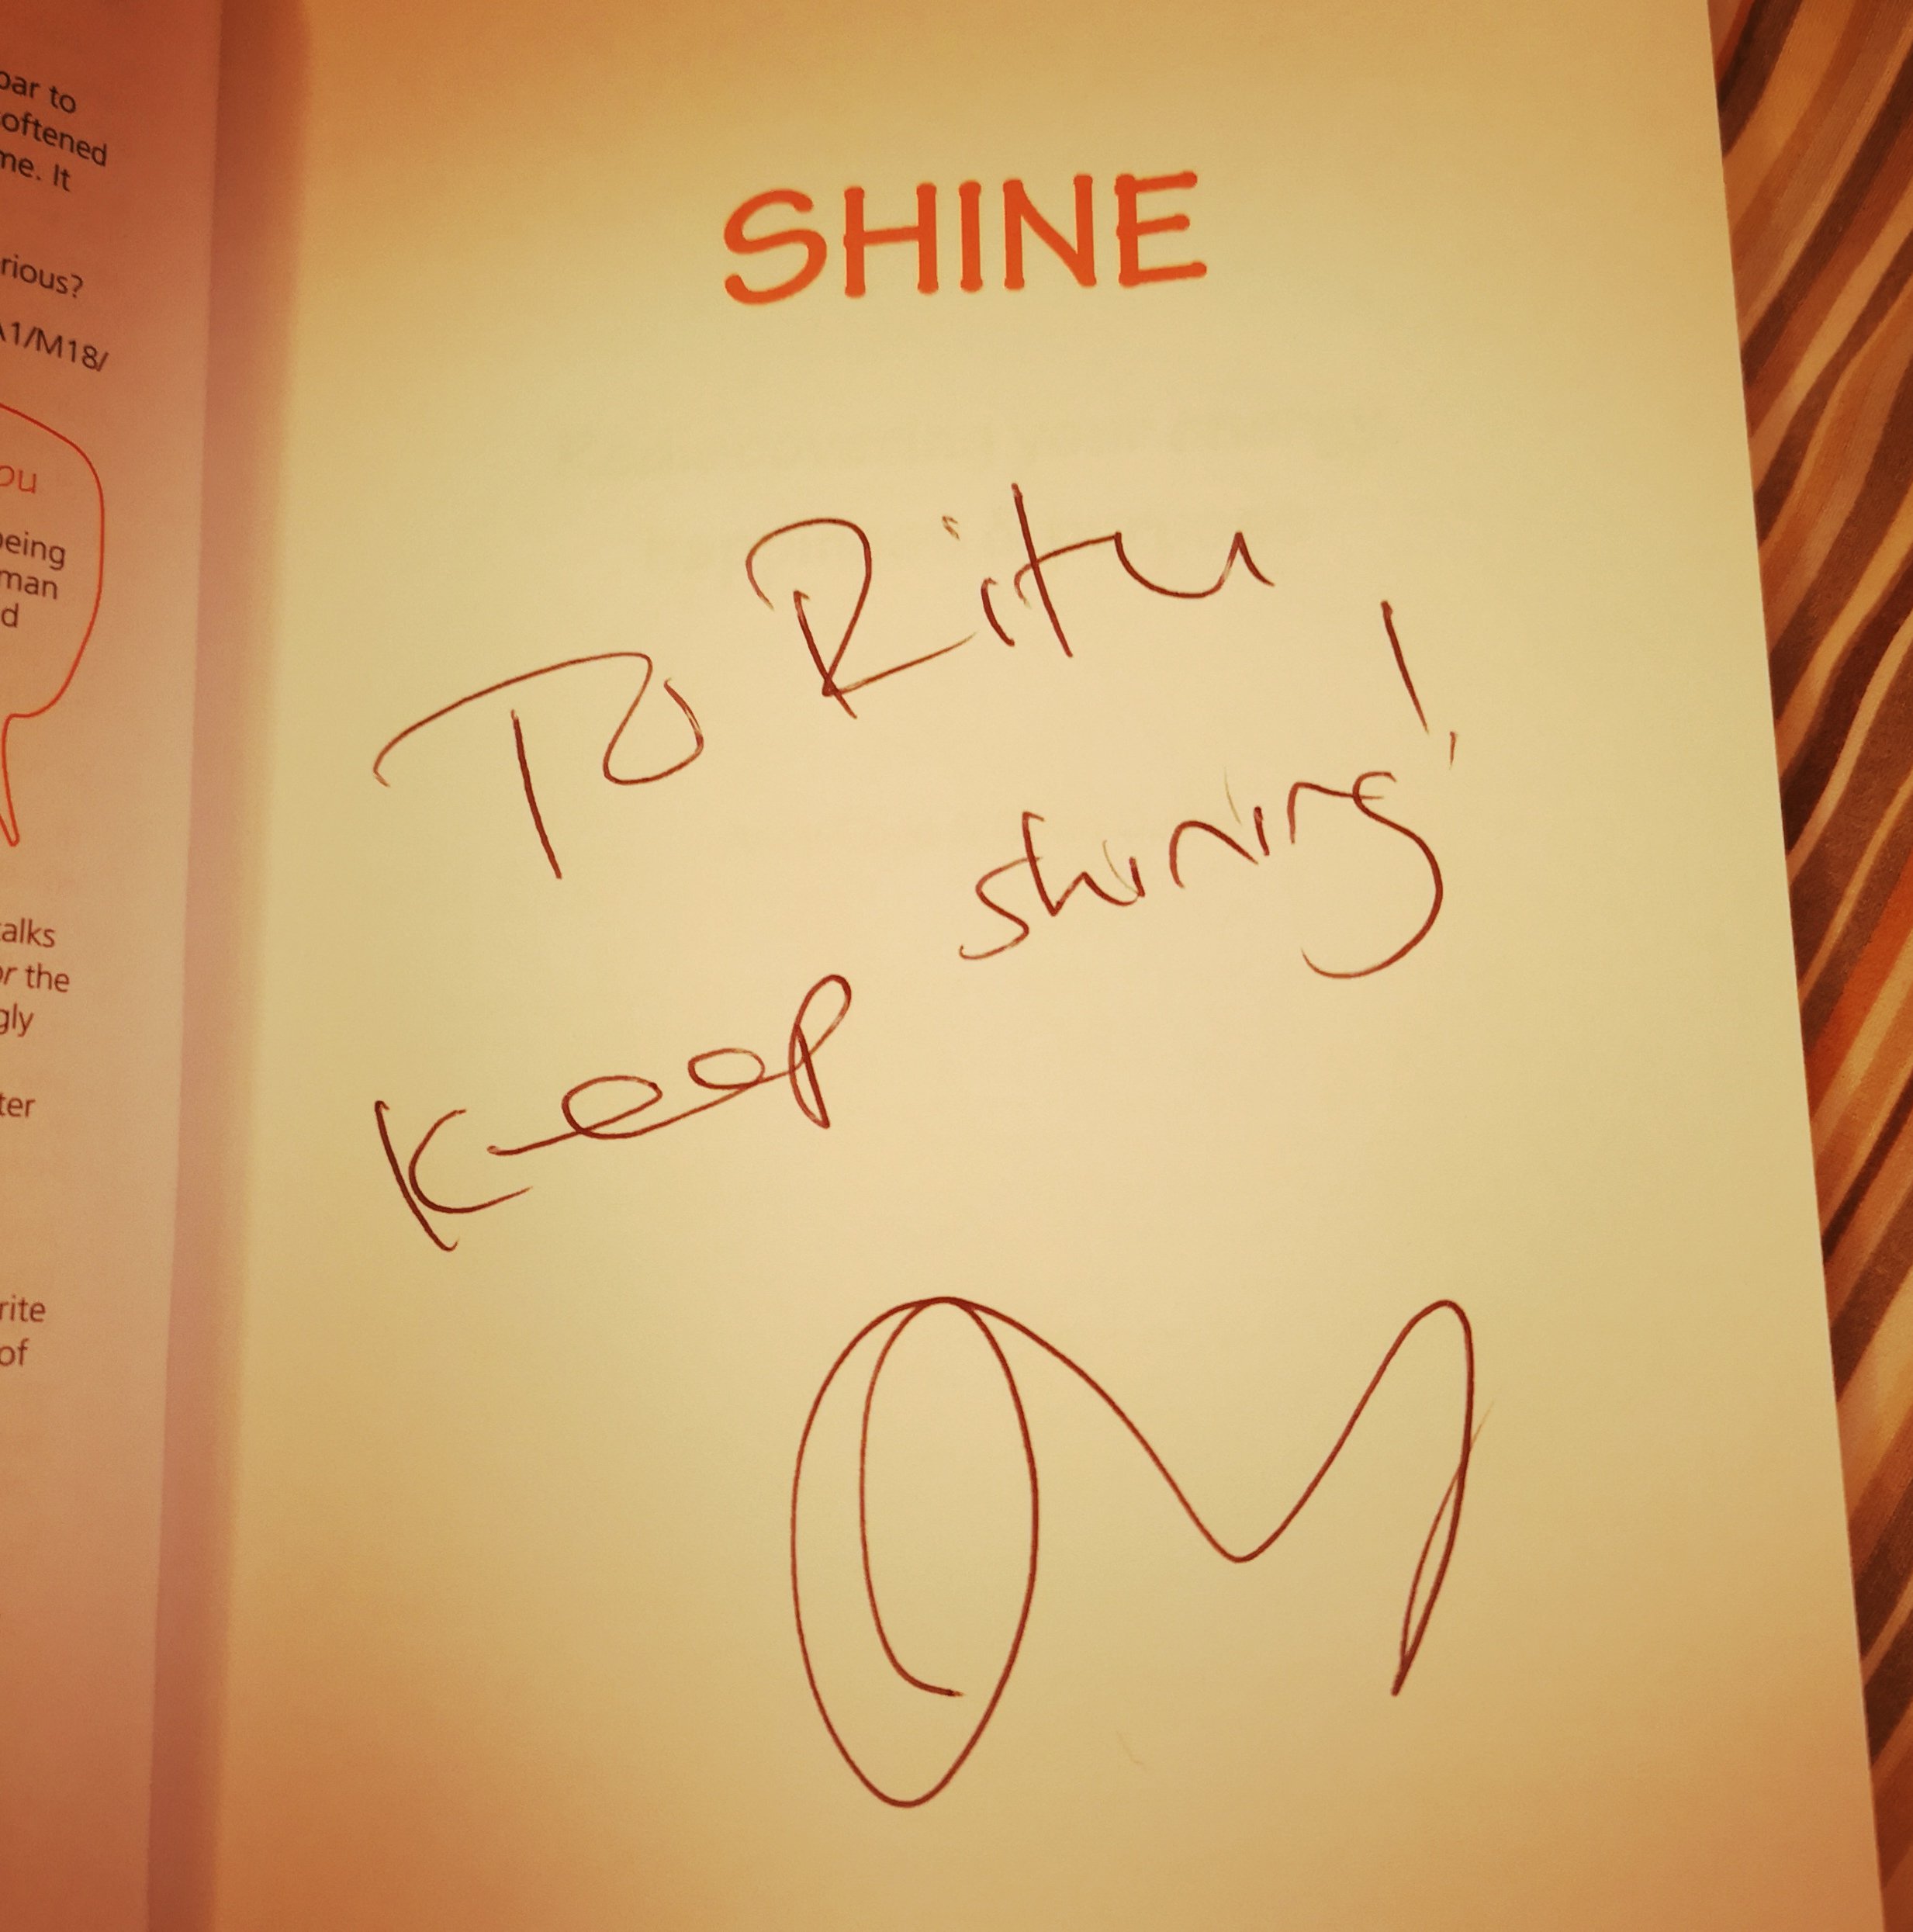 oar to
oftened
me. It
rious?
A1/M18/
ou
being
man
d
alks
or the
gly
ter
rite
of
SHINE
To Ritu
Keep shining!